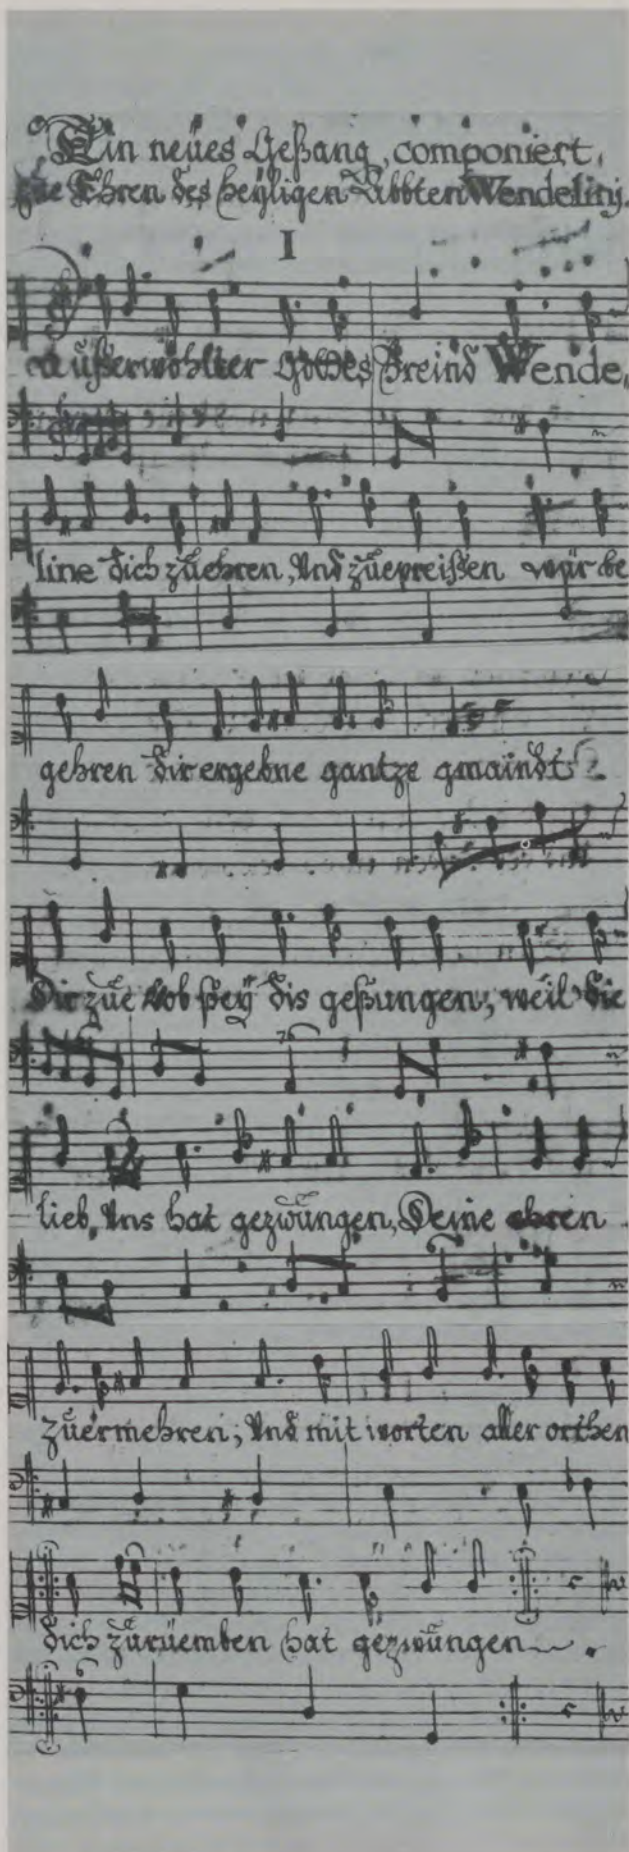 Ein neües Gesang, componiert,
zue Ehren des heyligen Abbten Wendelinj.
I
außerwöhlter Gottes Freind Wende,
line dich züehren, Vnd züepreißen wür be
gehren dir ergebne gantze gmaindt
Dir züe Lob seÿ dis gesungen, weil die
lieb, Vns hat gezwüngen, Deine ehren
züermehren; Vnd mit worten aller orthen
dich zürüemben hat gezwüngen